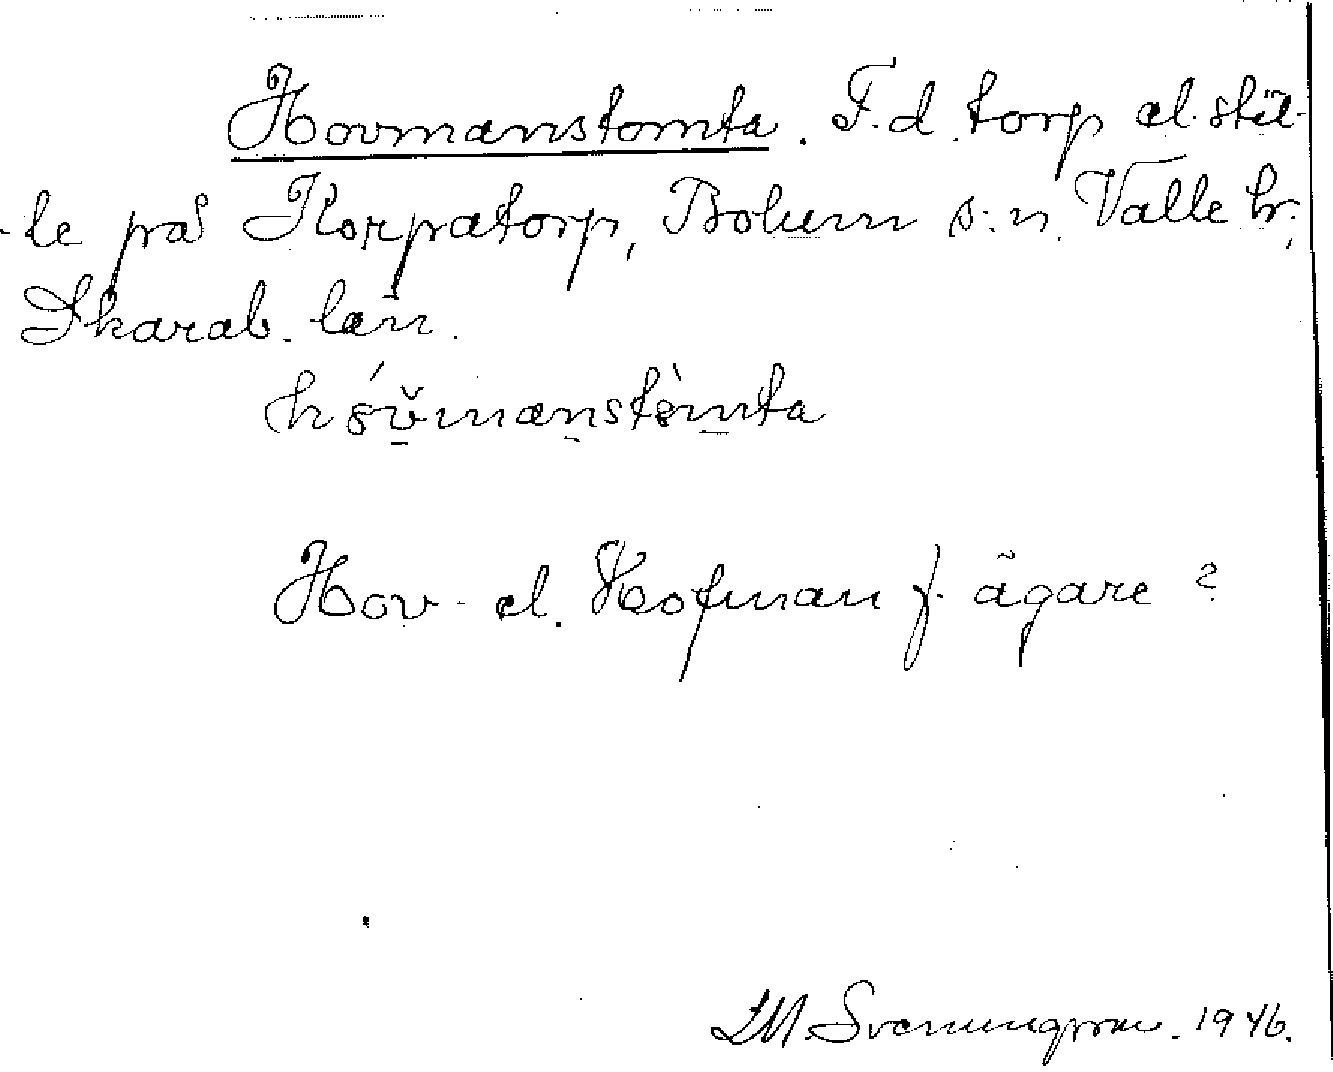 Hovmanstomta. F.d. torp el. stäl-
-le på Korpatorp, Bolum s:n. Valle hr,
Skarab. län.
Hov- el. Hofman f. ägare ?
Svenungsson. 1946.